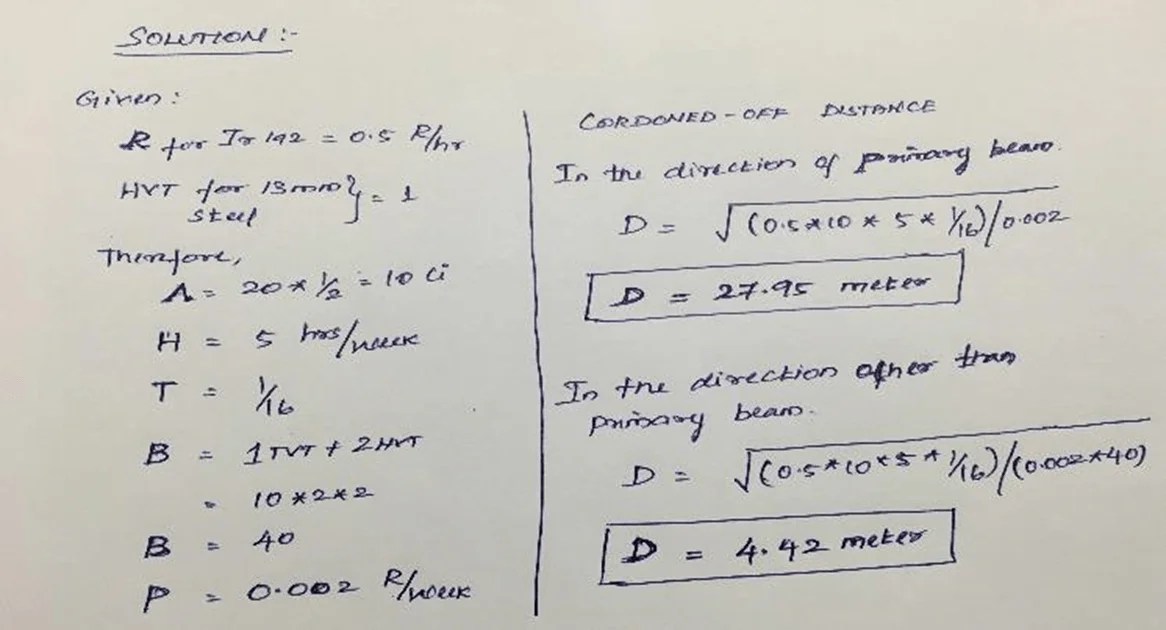 SOLUTION :-
Given :
R for Ir 192 = 0.5 R/hr
HVT for 13mm
steel } = 1
Therefore,
A = 20 * 1/2 = 10 Ci
H = 5 hrs/week
T = 1/16
B = 1 TVT + 2 HVT
= 10 * 2 * 2
B = 40
P = 0.002 R/week
CORDONED-OFF DISTANCE
In the direction of primary beam.
D = √(0.5*10 * 5 * 1/16)/0.002
D = 27.95 meter
In the direction other than
primary beam.
D = √(0.5*10*5*1/16)/(0.002*40)
D = 4.42 meter